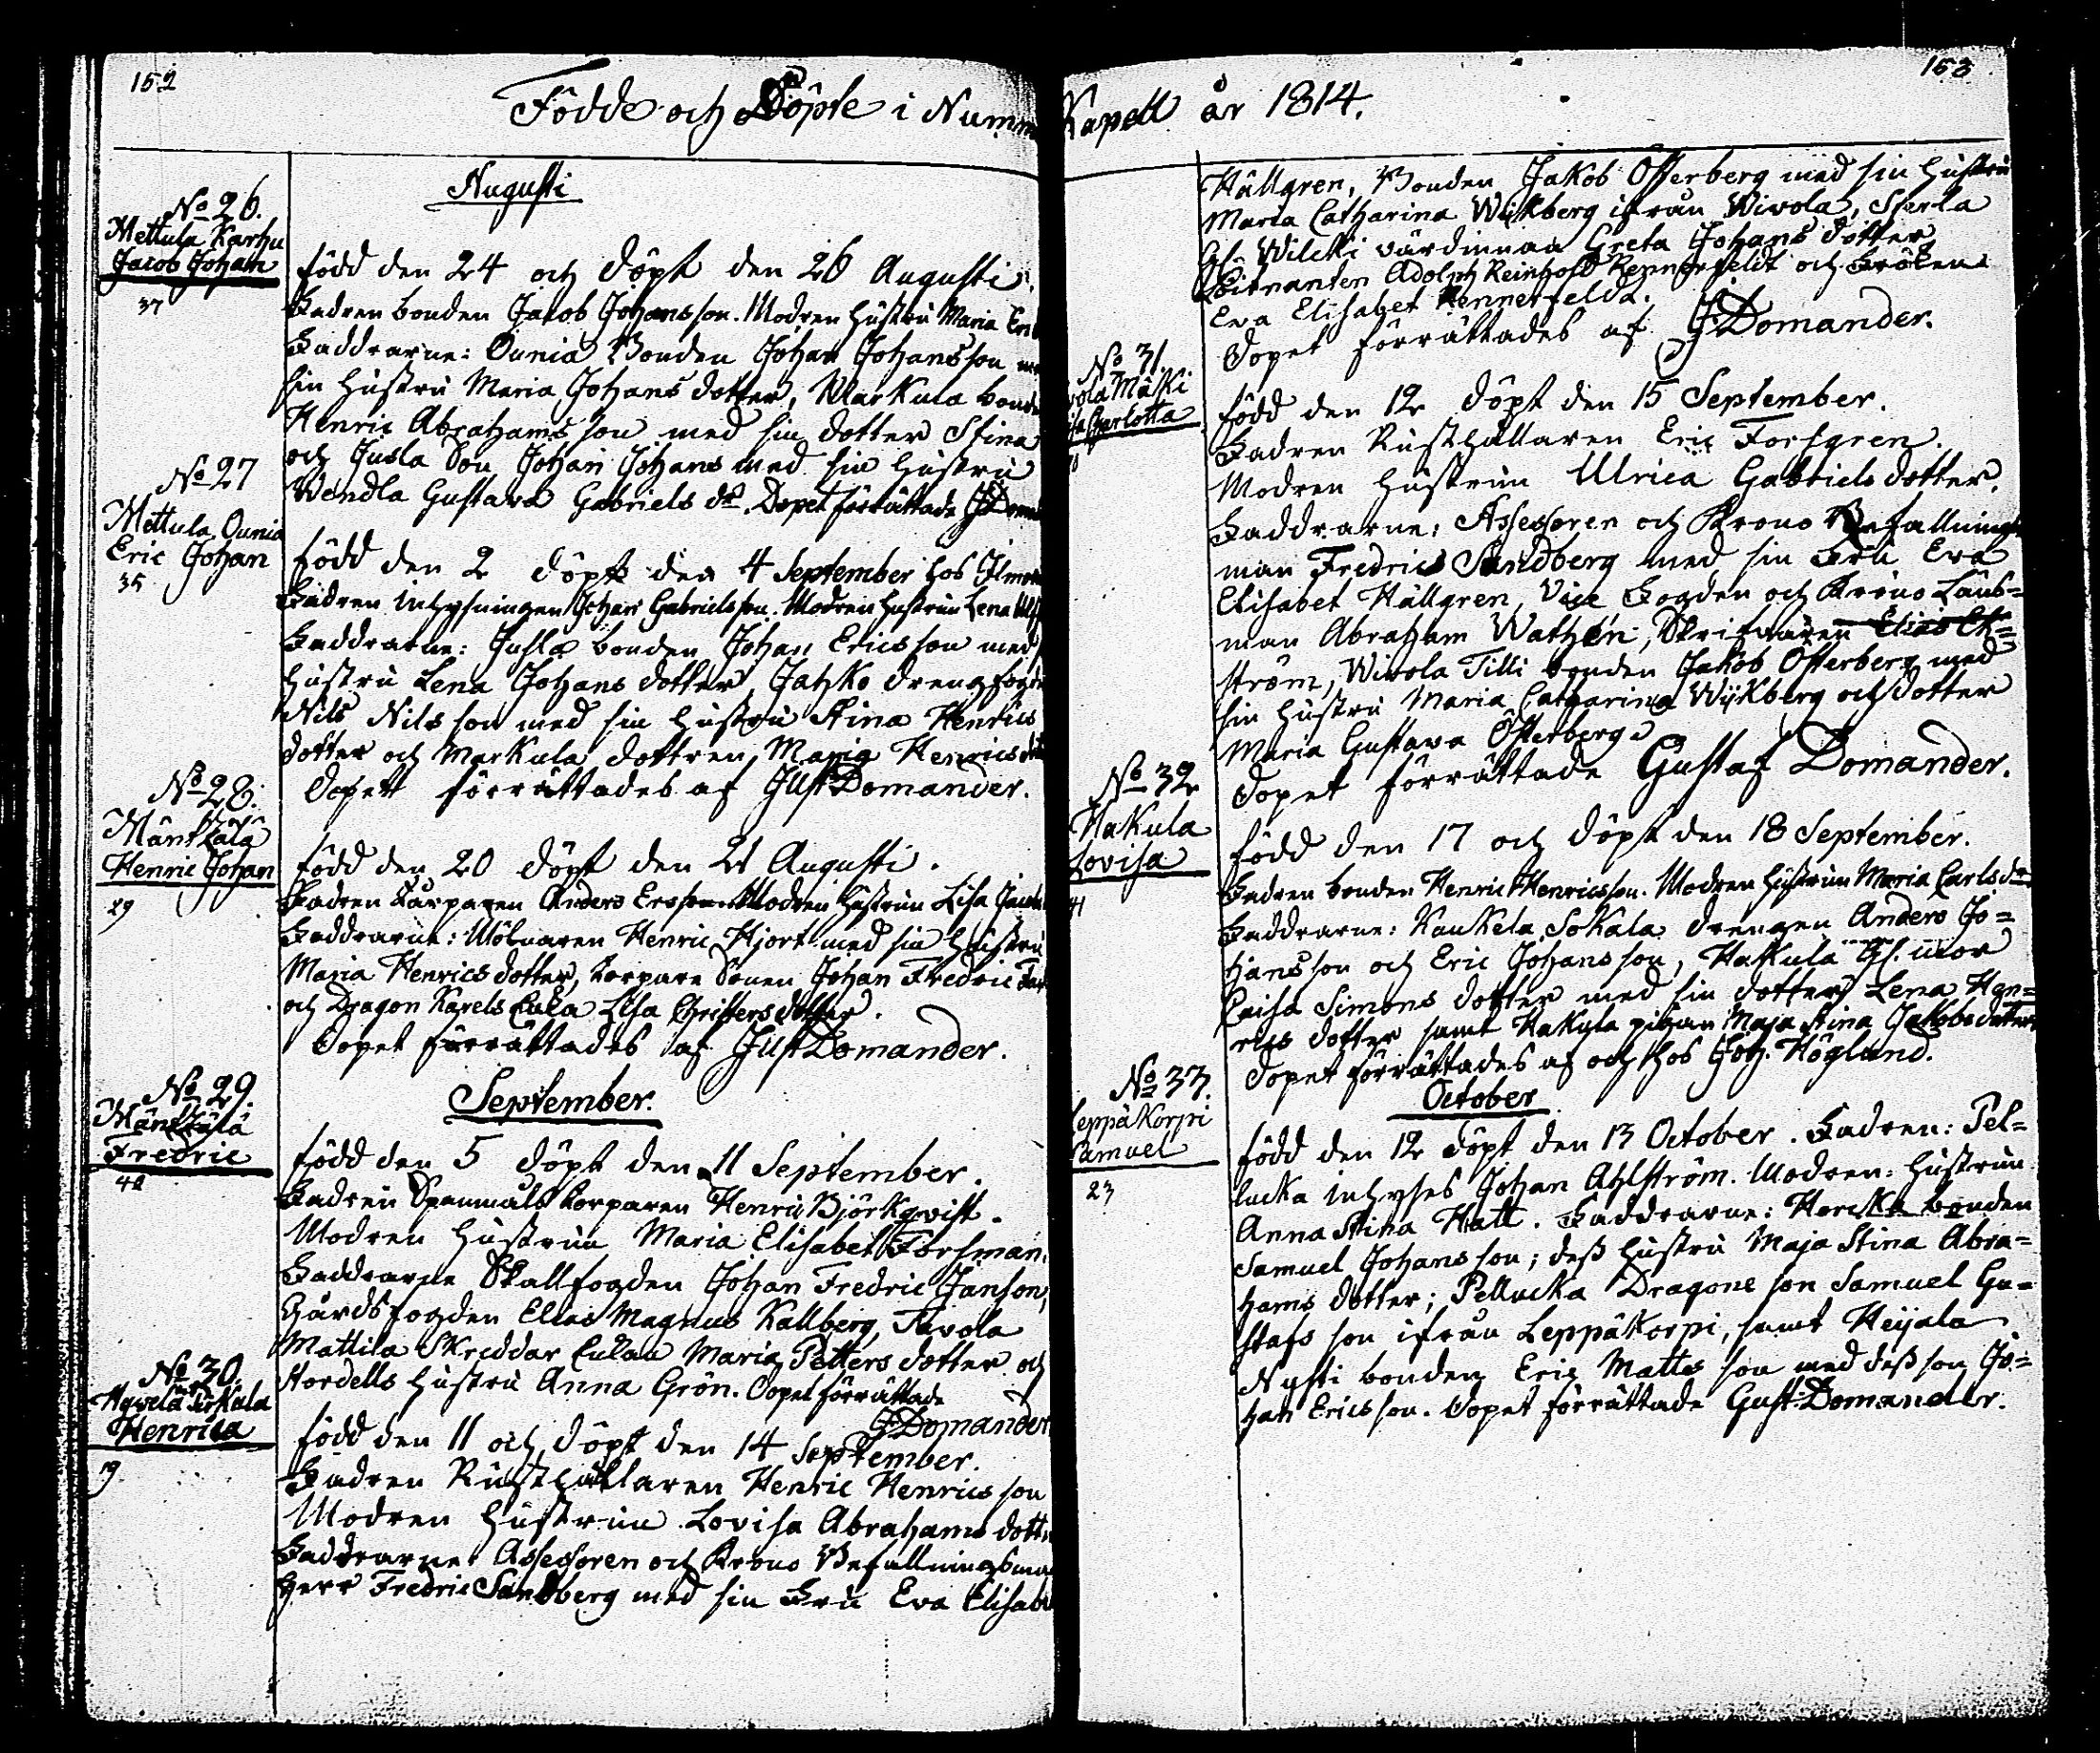 152
Födde och Döpte i Numm
Augusti
No 26.
Mettula Karhu
Jacob Johan
37
född den 24 och döpt den 26 Augusti.
Fadren bonden Jacob Johansson. Modren hustru Maria Eri
Faddrarne: Ounia Bonden Johan Johansson
sin hustru Maria Johans dotter, Markula bond
Henric Abrahamsson med sin dotter Stina
och Jusla Son Johan Johans med sin hustru
Wendla Gustava Gabriels dr. Dopet förrättade G Dom
No 27
Mettula Ounia
Eric Johan
35
född den 2 döpt den 4 September hos
Fadren inhysningen Johan Gabrielsson. Modren hustrun Lena
Faddrarne: Jusla bonden Johan Ericsson med
hustru Lena Johans dotter, Jahko drengfogden
Nils Nilsson med sin hustru Stina Henrics
dotter och Markula dottren Maria Henricsdot
Dopet förrättades af Gust Domander.
No 28.
Mäntzälä
Henric Johan
29
född den 20 döpt den 21 Augusti.
Fadren Torparen Anders Ersson. Modren hustrun Lisa Jacobs
Faddrarne: Mölnaren Henric Hjort med sin hustru
Maria Henrics dotter, torpare Sonen Johan Fredric
och Dragon Karels Enka Lisa Christersdotter.
Dopet förrättades af Gust Domander.
September.
No 29.
Mäntzälä
Fredric
42
född den 5 döpt den 11 September.
Fadren Spanmåls torparen Henric Björkqvist.
Modren hustrun Maria Elisabet Forsman.
Faddrarne Skallfogden Johan Fredric Janson,
Gårdsfogden Elias Magnus Kallberg, Tavola
Mattila Skreddar Enkan Maria Petters dotter och
Hordells hustru Anna Grön. Dopet förrättade
G. Domander
No 30.
Hyvelä Pirkula
Henrica
19
född den 11 och döpt den 14 September.
Fadren Rusthållaren Henric Henricsson
Modren hustrun Lovisa Abrahams dott
Faddrarne Assessoren och Krono Befallningsma
Herr Fredric Sandberg med sin Fru Eva Elisab
153
Kapell år 1814.
Hällgren, Bonden Jakob Österberg med sin hustru
Maria Catharina Wijkberg ifrån Wivola, Sierla
Gl. Wilcki värdinnan Greta Johans dotter
Löitnanten Adolph Reinhold Rennerfeldt och Fröken
Eva Elisabet Rennerfeldt.
Dopet förrättades af G. Domander.
No 31.
vola Mäki
Charlotta
född den 12 döpt den 15 September.
Fadren Rusthållaren Eric Forsgren.
Modren hustrun Ulrica Gabriels dotter.
Faddrarne: Assessoren och Krono Befallnings
man Fredric Sandberg med sin Fru Eva
Elisabet Hällgren, Vice Fogden och Krono Läns=
man Abraham Wathén, Skrifvaren Elias Ek=
ström, Wivola Tilli bonden Jakob Österberg med
sin hustru Maria Catharina Wijkberg och dotter
Maria Gustava Österberg
Dopet förrättade Gustaf Domander.
No 32
Hakula
Lovisa
41
född den 17 och döpt den 18 September.
Fadren bonden Henric Henricsson. Modren hustrun Maria Carlsdr
Faddrarne: Kaukela Sokala drengen Anders Jo=
hansson och Eric Johansson, Hakula Gl. mor
Caisa Simons dotter med sin dotter Lena Hen=
rics dotter samt Hakula pigan Maja Stina Jakobsdotter
Dopet förrättades af och hos Joh. Höglund.
October
No 33.
Leppäkorpi
Samuel
23
född den 12 döpt den 13 October. Fadren: Pel=
lucka inhyses Johan Ahlström. Modren: hustrun
Anna Stina Hatt. Faddrarne: Horcka bonden
Samuel Johansson; dess hustru Maja Stina Abra=
hams dotter; Pellucka Dragone son Samuel Gu=
stafs son ifrån Leppäkorpi, samt Heijala
Nysti bonden Eric Mattsson med dess son Jo=
han Ericsson. Dopet förrättade Gust. Domander.